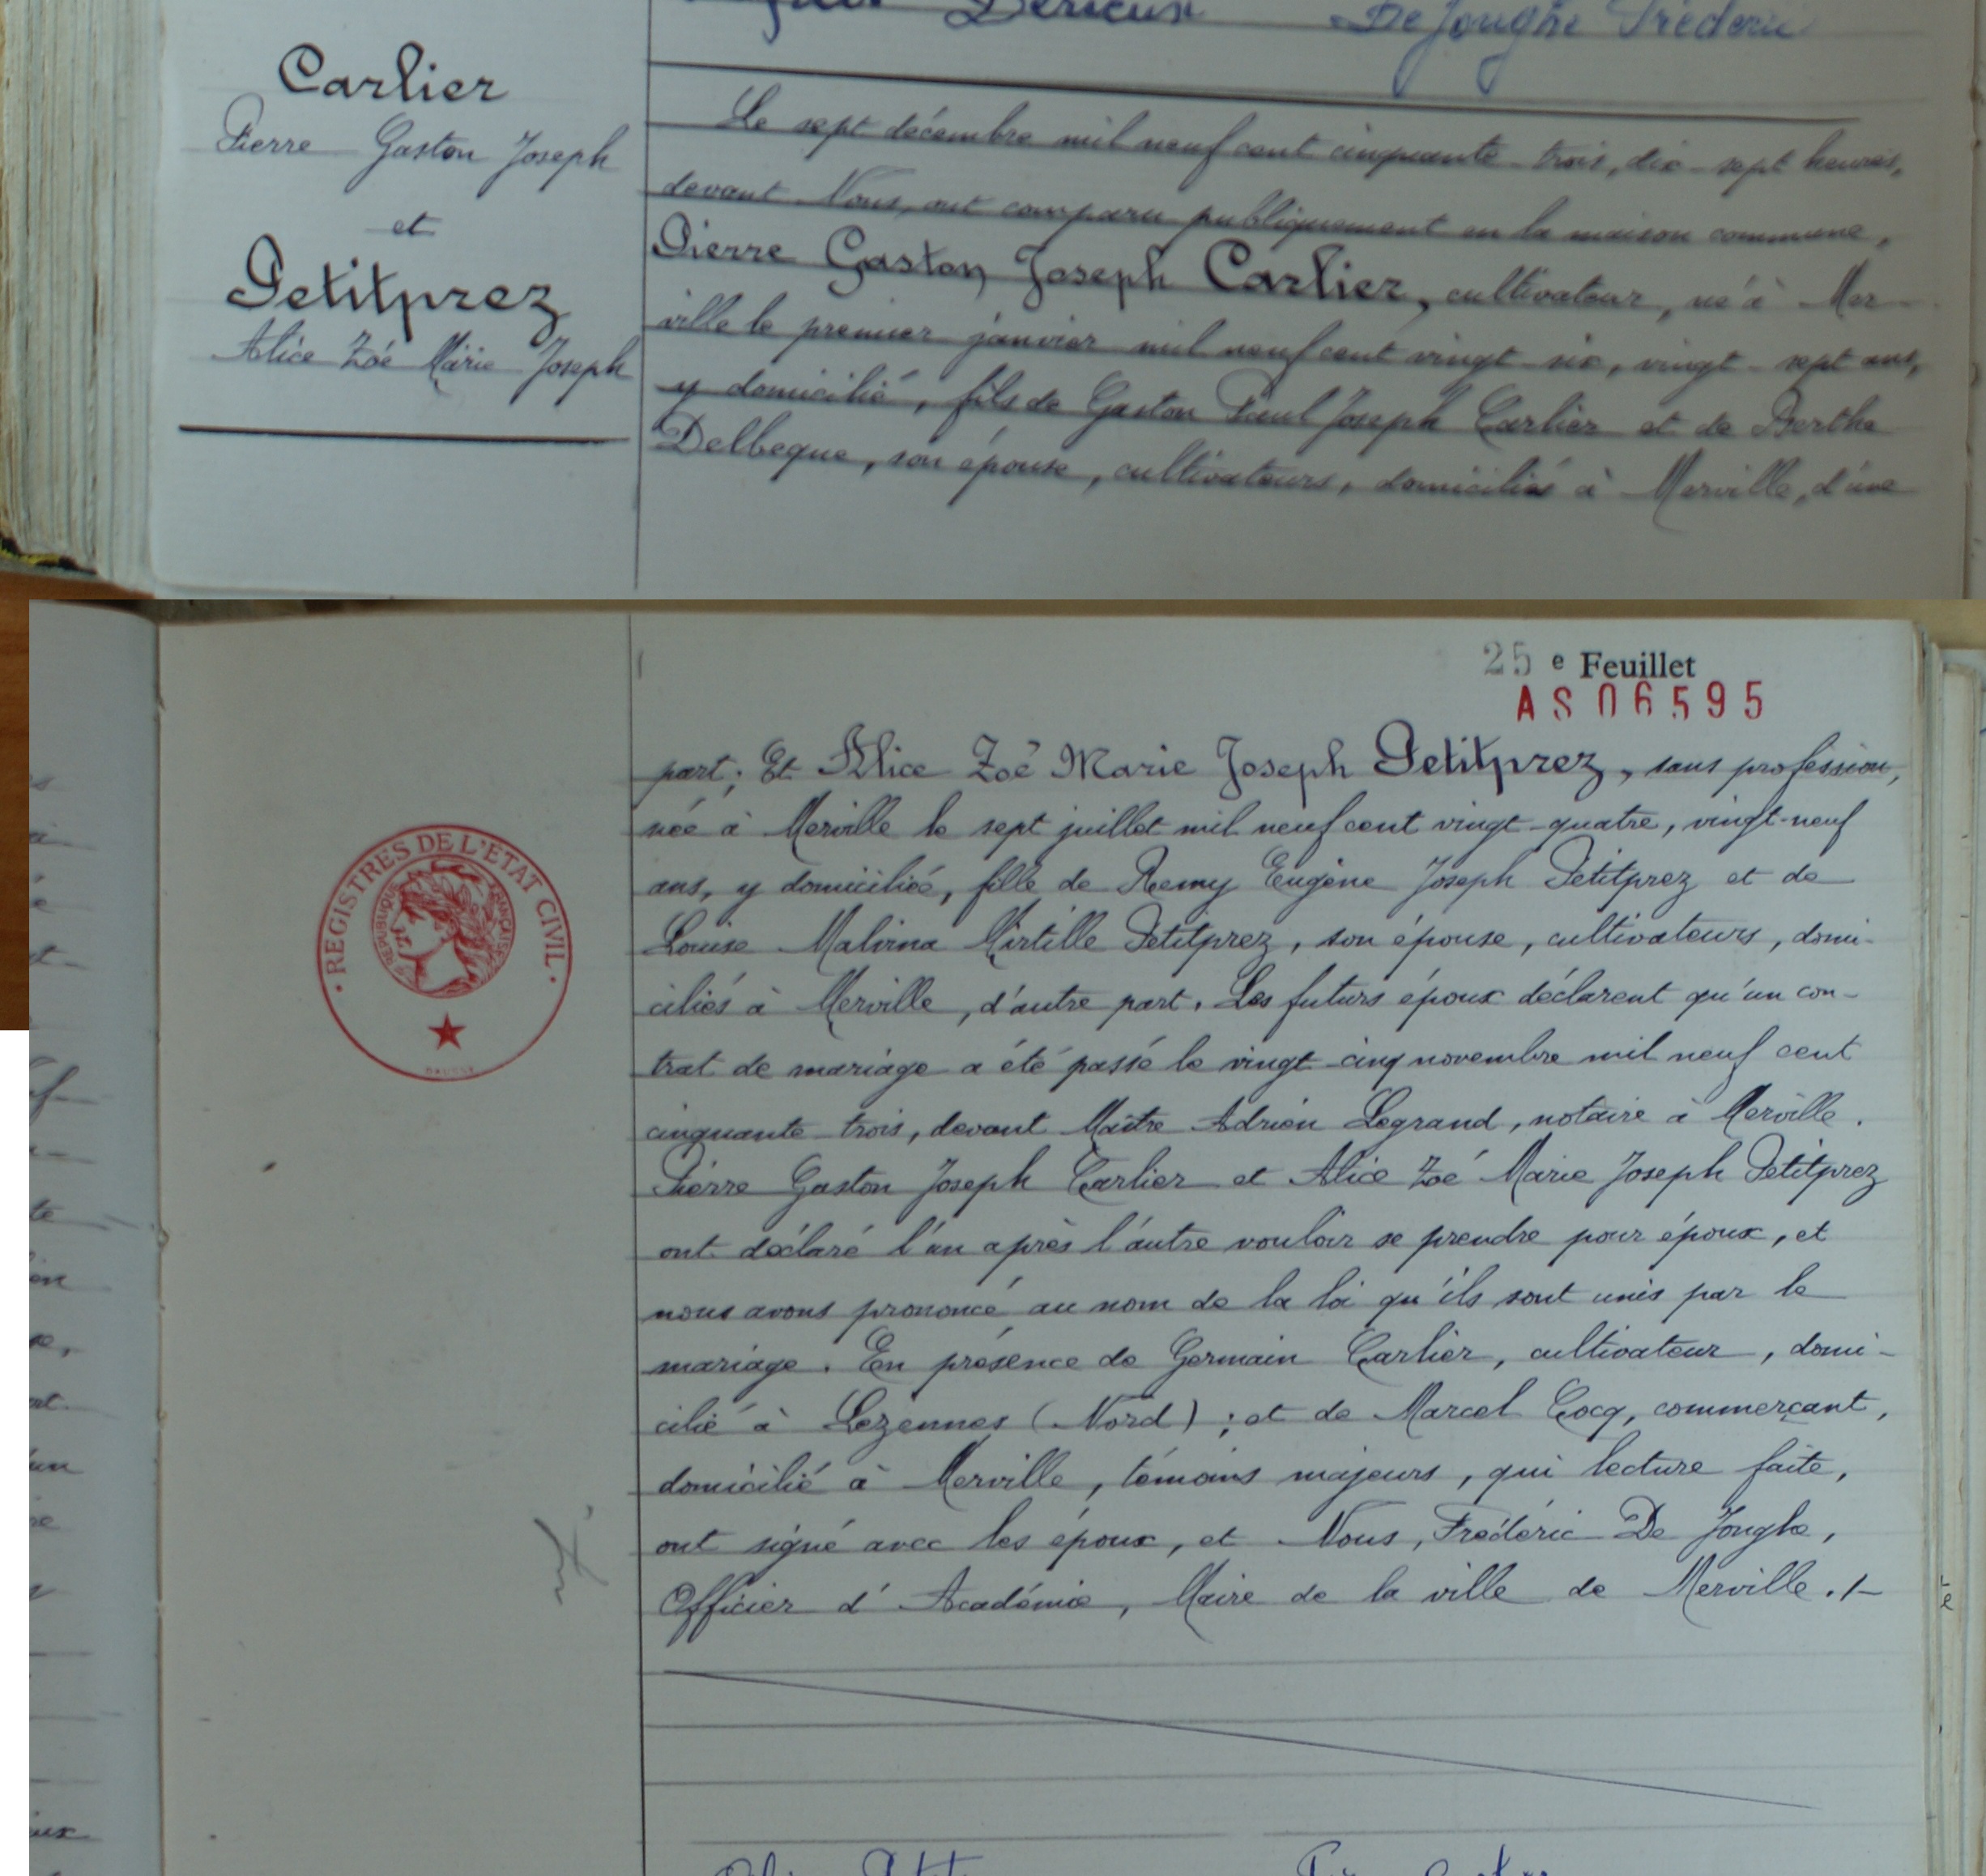 Derieux De Jonghe Frédéric
Carlier
Pierre Gaston Joseph
et
Petitprez
Alice Zoé Marie Joseph
Le sept décembre mil neuf cent cinquante-trois, dix-sept heures,
devant Nous, ont comparu publiquement en la maison commune,
Pierre Gaston Joseph Carlier, cultivateur, né à Mer-
ville le premier janvier mil neuf cent vingt-six, vingt-sept ans,
y domicilié, fils de Gaston Paul Joseph Carlier et de Berthe
Delbeque, son épouse, cultivateurs, domiciliés à Merville, d'une
25 e Feuillet
AS06595
part; Et Alice Zoé Marie Joseph Petitprez, sans profession,
née à Merville le sept juillet mil neuf cent vingt-quatre, vingt-neuf
ans, y domiciliée, fille de Remy Eugène Joseph Petitprez et de
Louise Malvina Mirtille Petitprez, son épouse, cultivateurs, domi-
ciliés à Merville, d'autre part. Les futurs époux déclarent qu'un con-
trat de mariage a été passé le vingt-cinq novembre mil neuf cent
cinquante-trois, devant Maître Adrien Legrand, notaire à Merville.
Pierre Gaston Joseph Carlier et Alice Zoé Marie Joseph Petitprez
ont déclaré l'un après l'autre vouloir se prendre pour époux, et
nous avons prononcé au nom de la loi qu'ils sont unis par le
mariage. En présence de Germain Carlier, cultivateur, domi-
cilié à Lezennes (Nord); et de Marcel Cocq, commerçant,
domicilié à Merville, témoins majeurs, qui lecture faite,
ont signé avec les époux, et Nous, Frédéric De Jonghe,
Officier d'Académie, Maire de la ville de Merville. /-
REGISTRES DE L'ETAT CIVIL
REPUBLIQUE FRANÇAISE